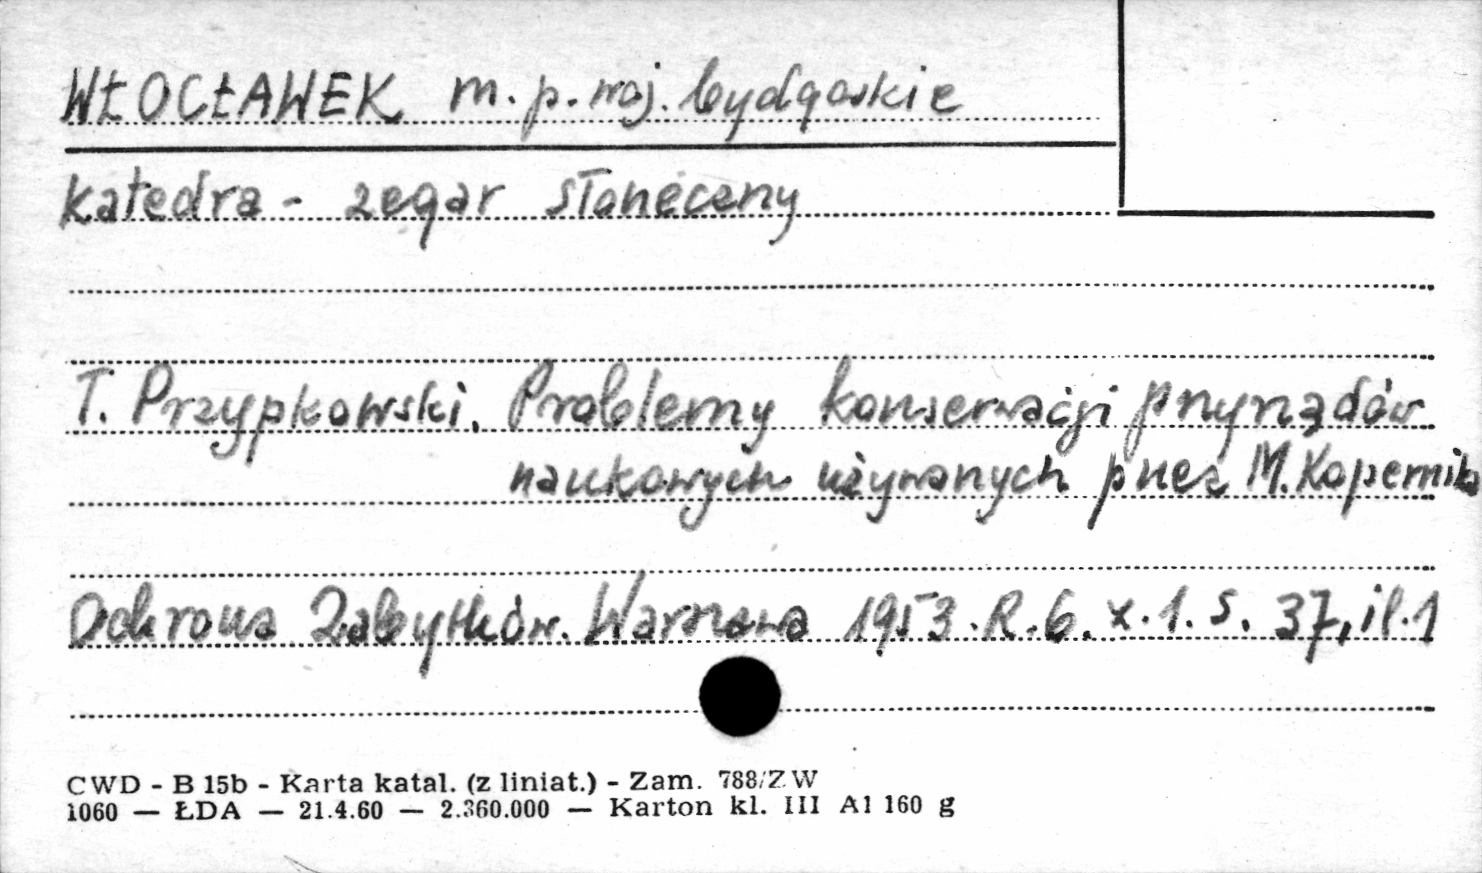 WŁOCŁAWEK m. p. woj. bydgoskie
katedra - zegar słoneczny
T. Przypkowski. Problemy konserwacji przyrządów
naukowych używanych przez M. Kopernika
Ochrona Zabytków. Warszawa 1953. R. 6. z. 1. s. 37, il. 1
CWD - B 15b - Karta katal. (z liniat.) - Zam. 788/ZW
1060 — ŁDA — 21.4.60 — 2.360.000 — Karton kl. III A1 160 g